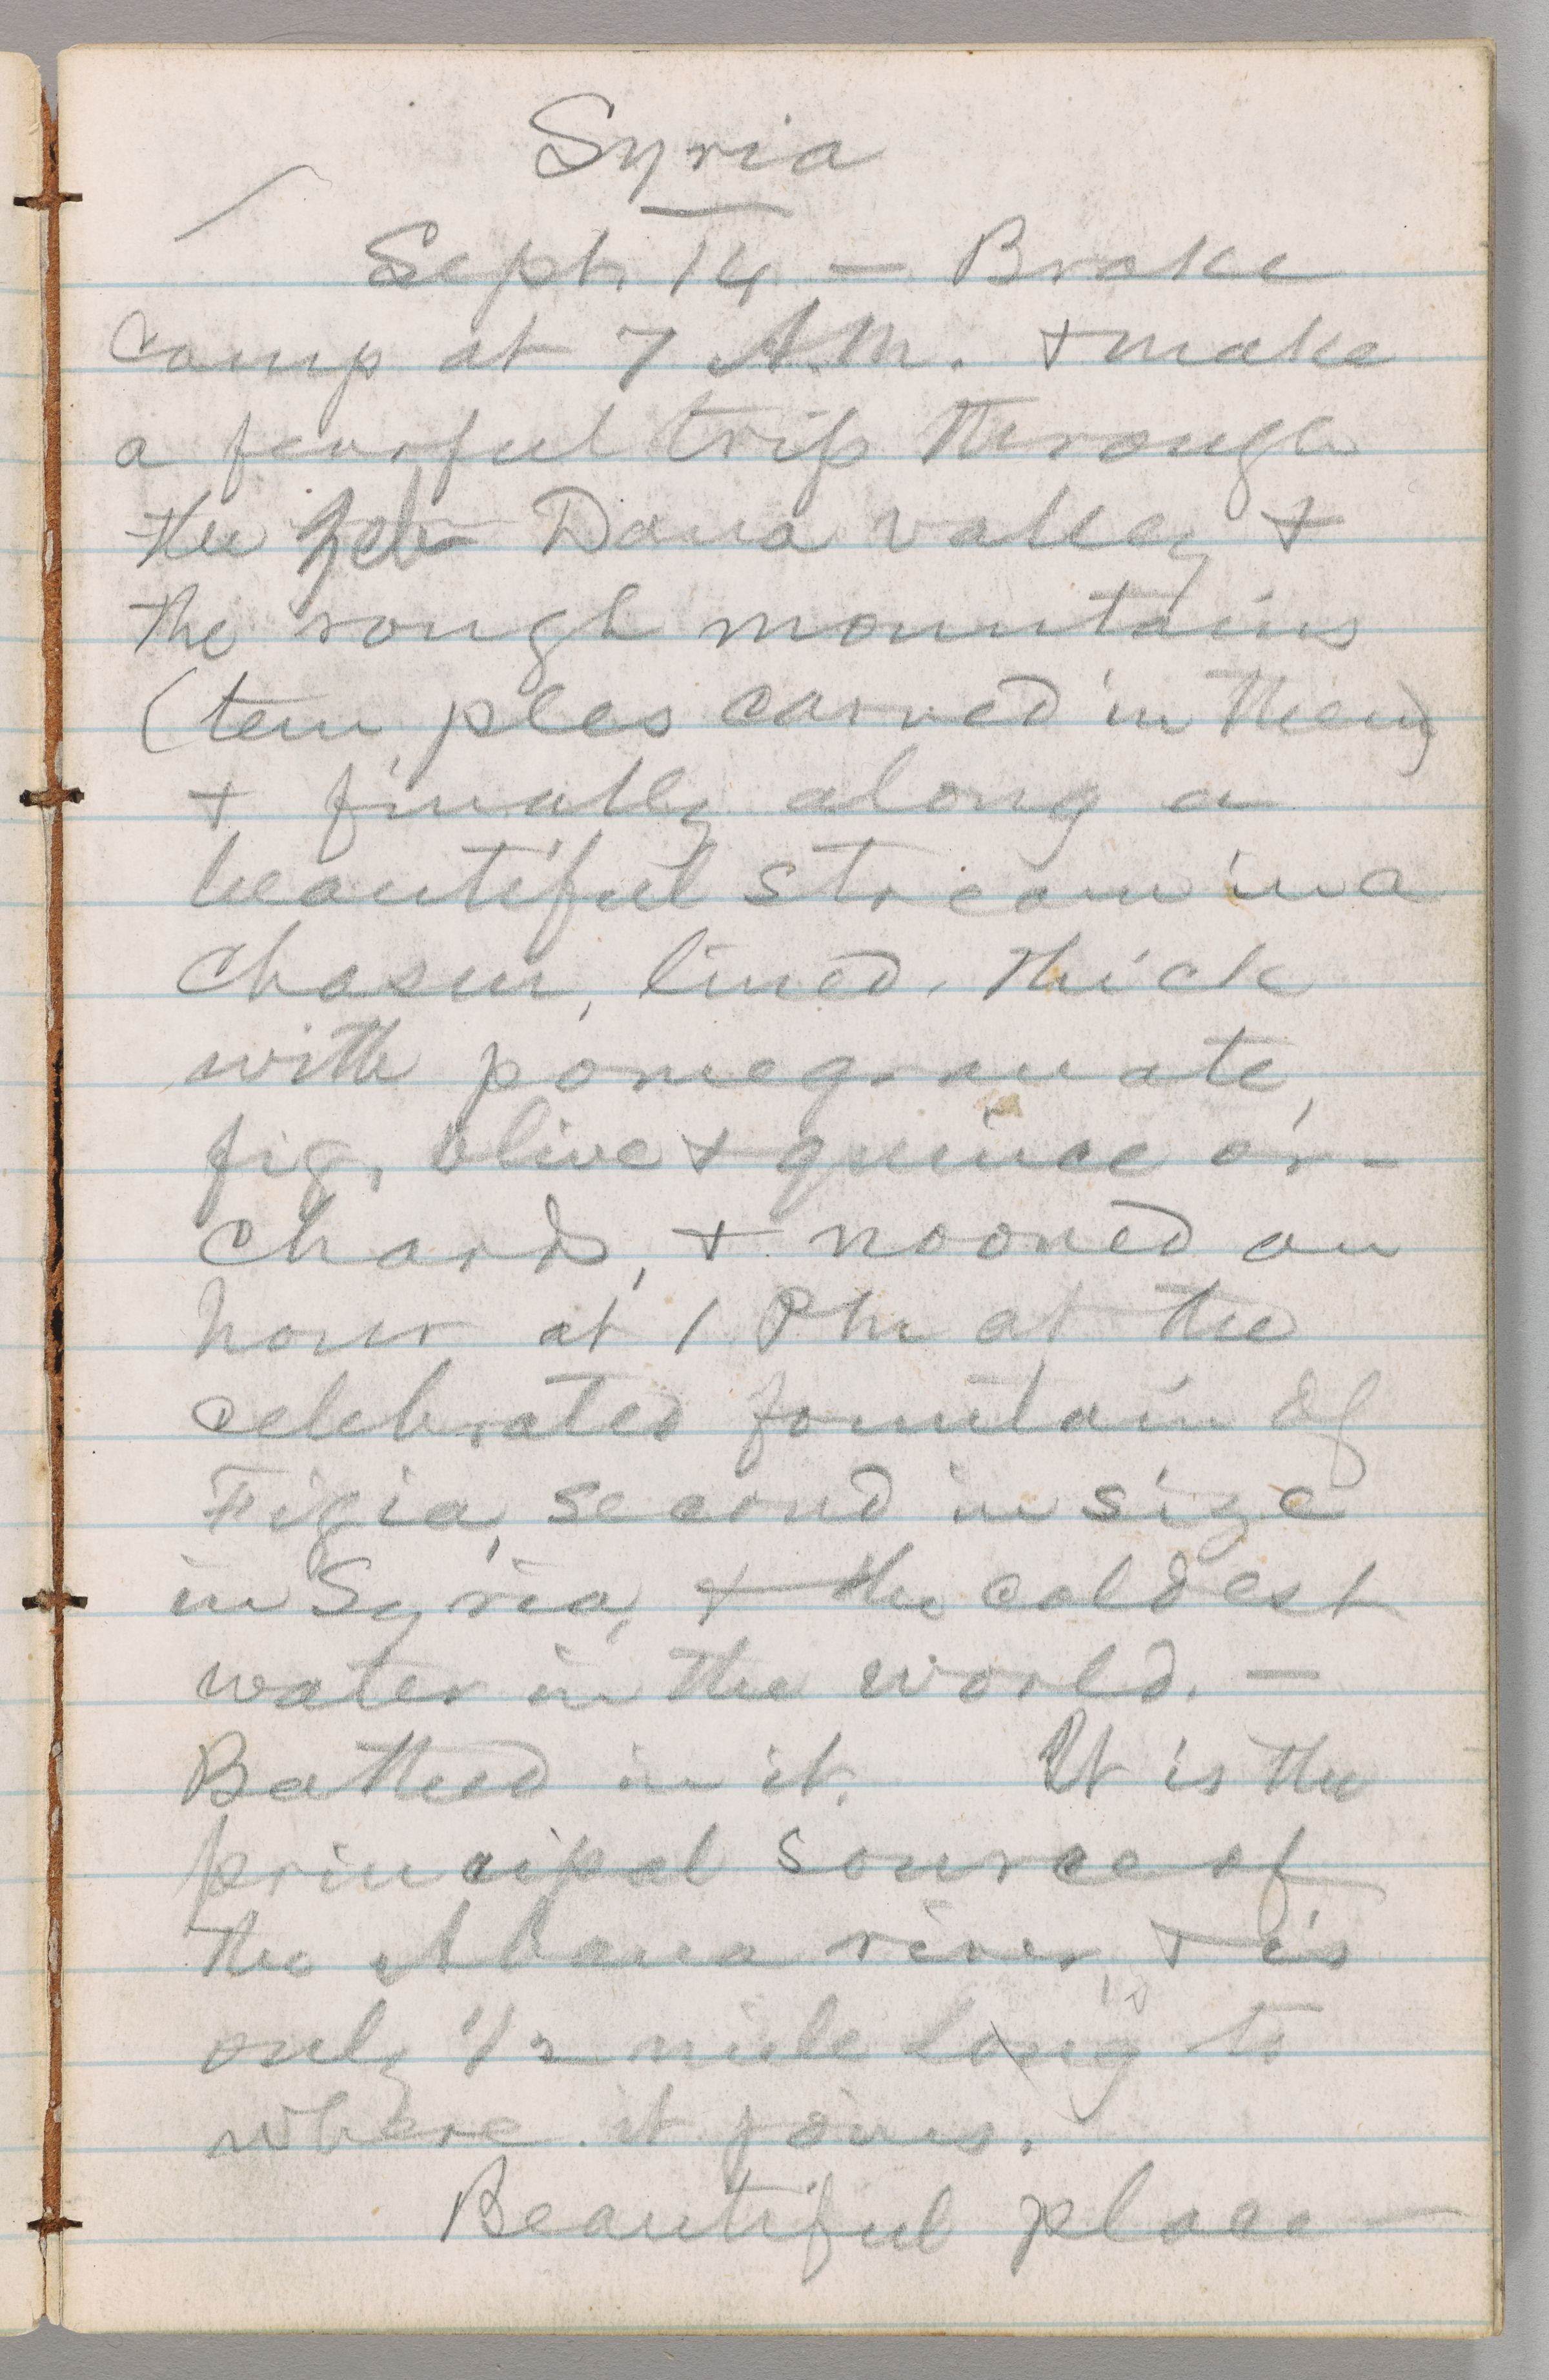 Syria
Sept. 14 — Brake
camp at 7 A.M. & make
a fearful trip through
the Zeb Dana valley &
the rough mountains
(tem ples carved in them)
& finally along a
beautiful stream in a
chasm, lined, thick
with pomegranate,
fig, olive & quince or-
chards, & nooned an
hour at 1 PM at the
celebrated fountain of
Figia, second in size
in Syria, & the coldest
water in the world. —
Bathed in it. It is the
principal source of
the Abana river, & is
only 1/2 mile long to
where it joins.
Beautiful place —